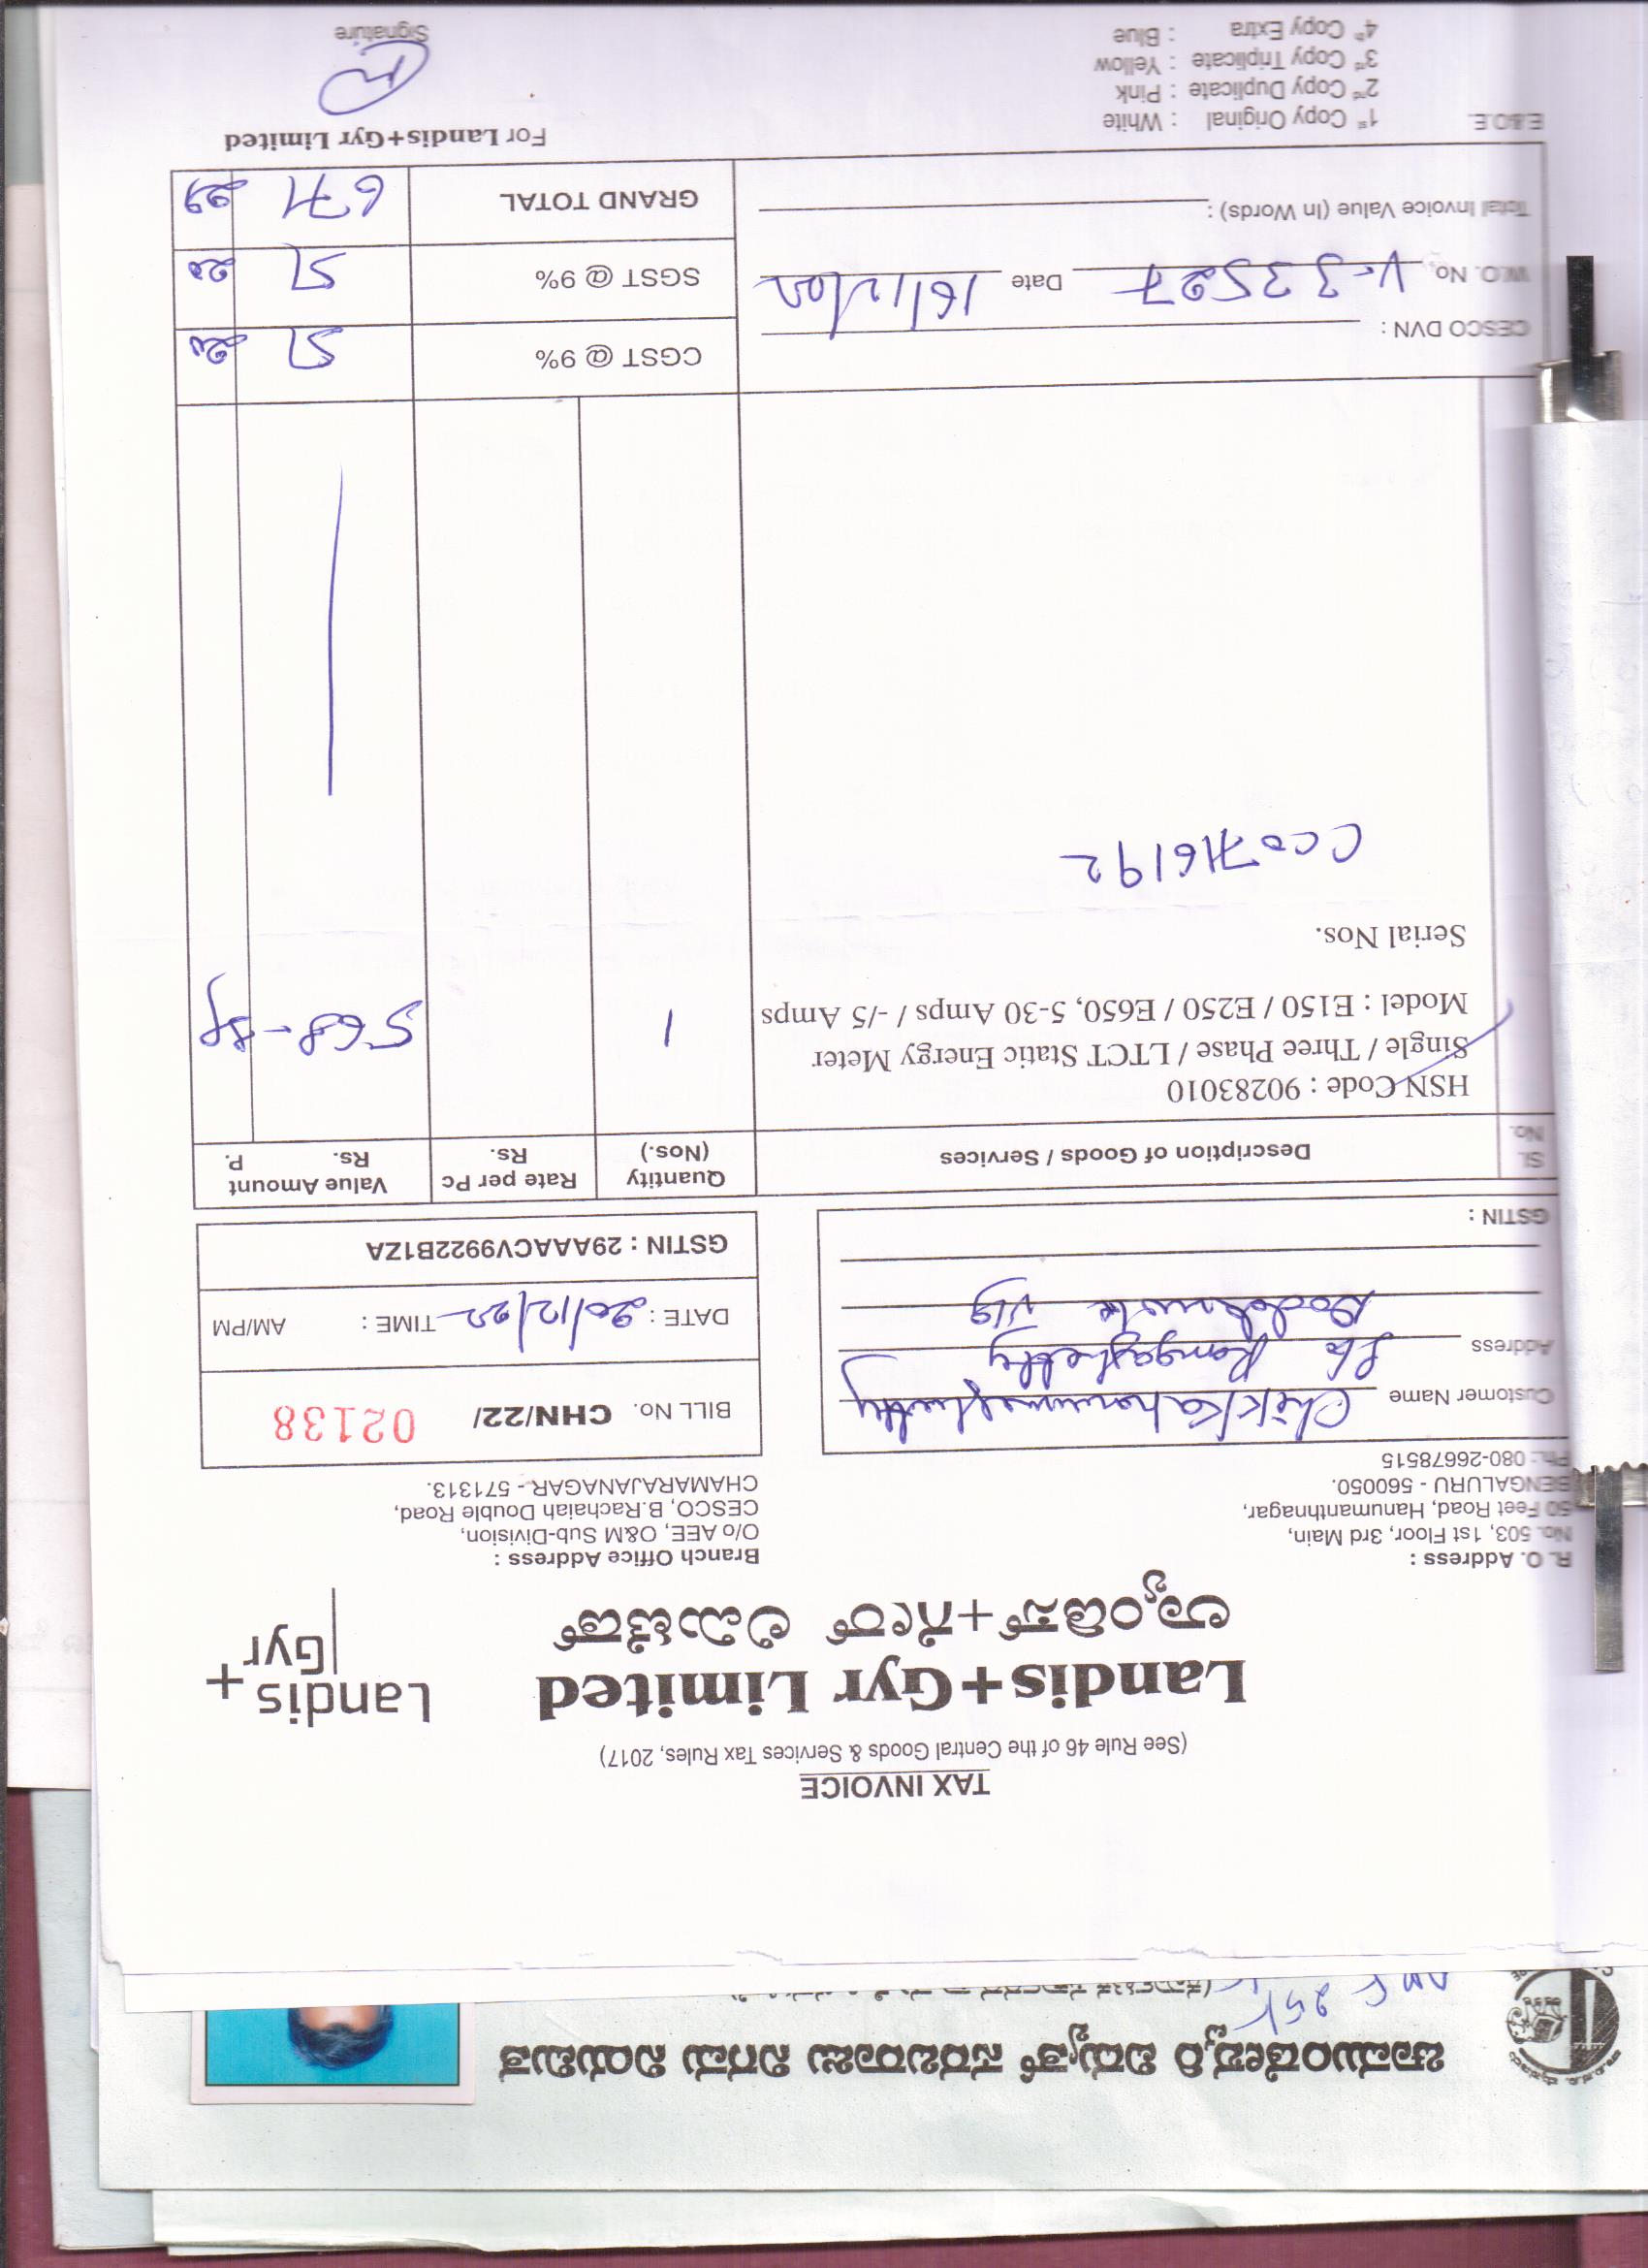 TAX INVOICE
(See Rule 46 of the Central Goods & Services Tax Rules, 2017)
Landis+Gyr Limited
ಲ್ಯಾಂಡಿಸ್+ಗೇರ್ ಲಿಮಿಟೆಡ್
Landis+
Gyr
R. O. Address :
No. 503, 1st Floor, 3rd Main,
50 Feet Road, Hanumanthnagar,
BENGALURU - 560050.
Ph.: 080-26678515
Branch Office Address :
O/o AEE, O&M Sub-Division,
CESCO, B.Rachaiah Double Road,
CHAMARAJANAGAR - 571313.
Customer Name
Address S/o Rangashetty
Vlg
GSTIN :
BILL No. CHN/22/ 02138
DATE : 20/12/22 TIME : AM/PM
GSTIN : 29AAACV9922B1ZA
SL No. Description of Goods / Services Quantity (Nos.) Rate per Pc Rs. Value Amount Rs. P.
HSN Code : 90283010
Single / Three Phase / LTCT Static Energy Meter
Model : E150 / E250 / E650, 5-30 Amps / -/5 Amps 1 568-
Serial Nos.
CC0716192
CESCO DVN :
W.O. No. V-33527 Date 16/12/22
Total Invoice Value (In Words) :
CGST @ 9% 51 20
SGST @ 9% 51 20
GRAND TOTAL 671 29
E.&O.E.
1st Copy Original : White
2nd Copy Duplicate : Pink
3rd Copy Triplicate : Yellow
4th Copy Extra : Blue
For Landis+Gyr Limited
Signature
ಚಾಮುಂಡೇಶ್ವರಿ ವಿದ್ಯುತ್ ಸರಬರಾಜು ನಿಗಮ ನಿಯಮಿತ